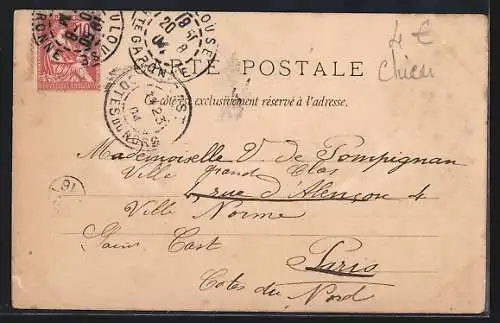 4 €
Chien
CARTE POSTALE
Ce côté est exclusivement réservé à l'adresse.
TOULOUSE
HTE GARONNE
20 8
04
CÔTES DU NORD
23
04
16
Mademoiselle V. de Pompignan
Ville Grand Clos
4 rue d'Alençon 4
Ville Norme
Saint Cast
Paris
Cotes du Nord